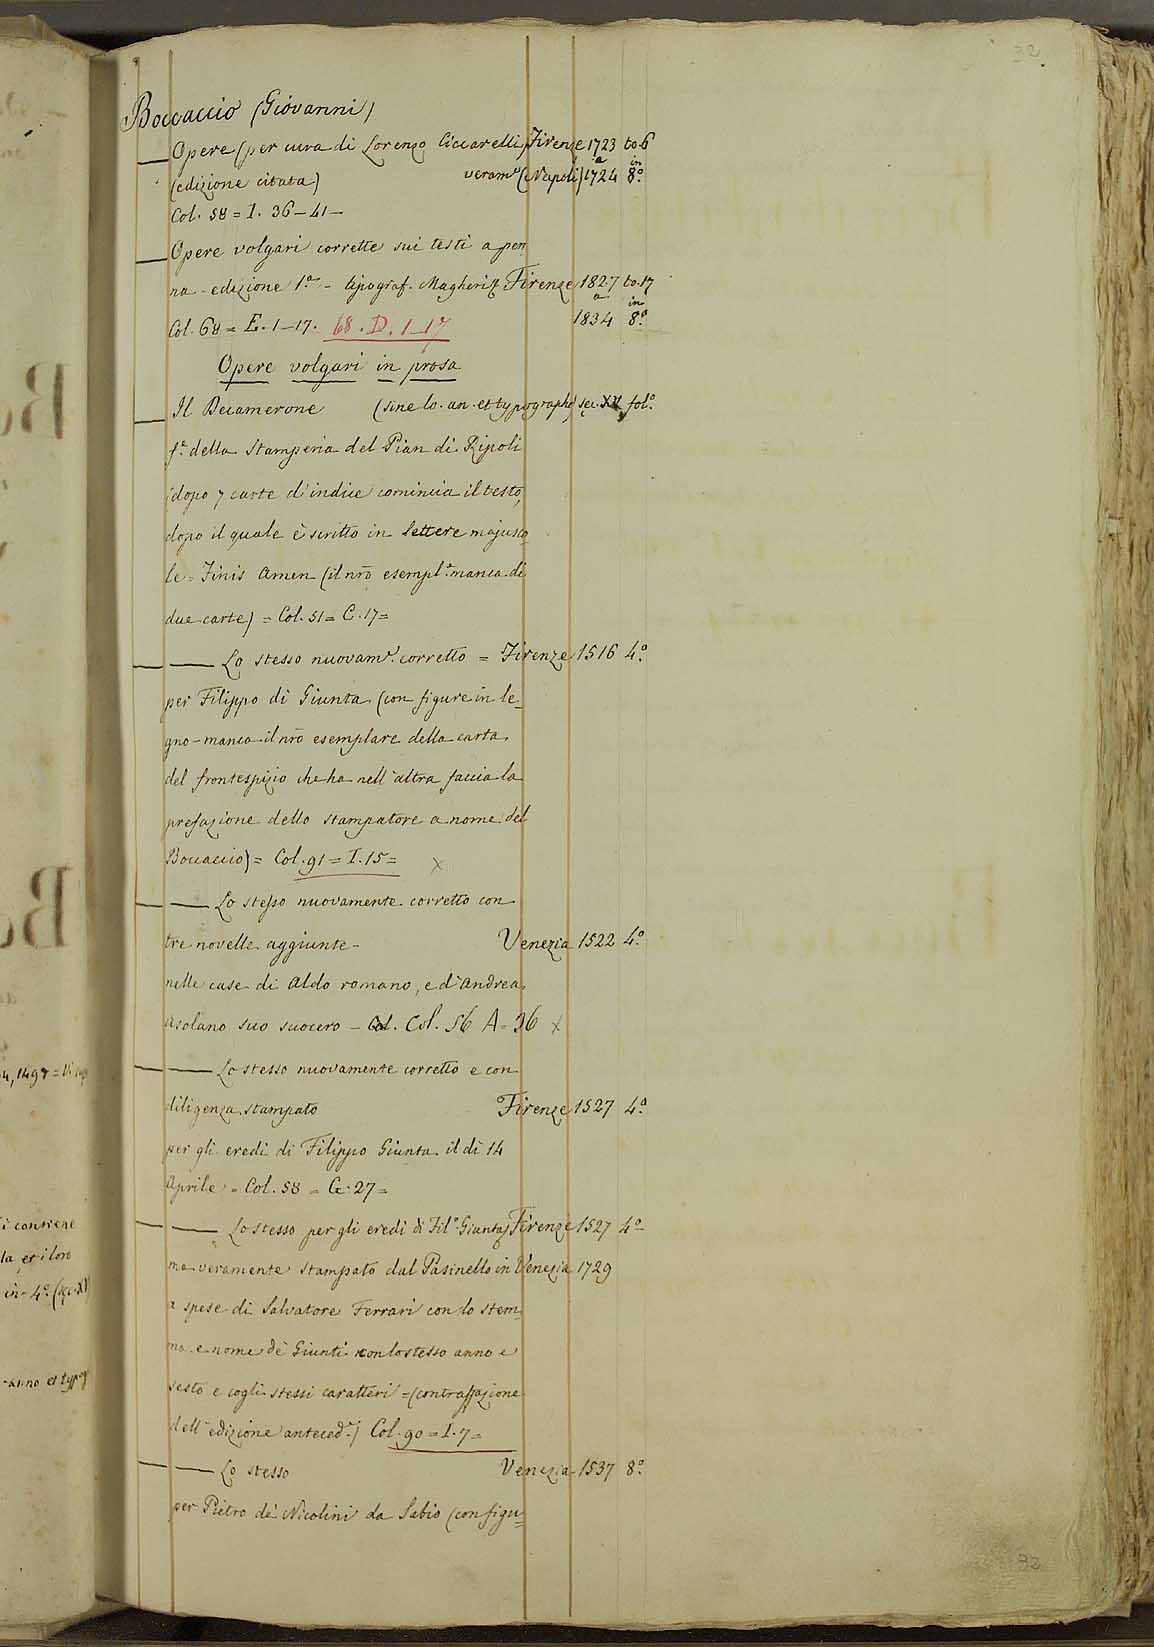 32
Boccaccio (Giovanni)
Opere (per cura di Lorenzo Ciccarelli) Firenze 1723 to. 6
(edizione citata) veram.e (Napoli) a 1724 in 8.o
Col. 58 = I. 36-41-
Opere volgari corrette sui testi a pen
na - edizione 1.a - tipograf. Magheri Firenze 1827 to. 17
Col. 68 = E. 1-17. 68. D. 1-17 a 1834 in 8.o
Opere volgari in prosa
Il Decamerone (sine lo. an. et typographo) sec. XV fol.o
f.a della Stamperia del Pian di Ripoli
(dopo 7 carte d'indice comincia il testo,
dopo il quale è scritto in lettere majusco-
le = Finis Amen (il nro esempl.e manca di
due carte) = Col. 51 = C. 17 =
Lo stesso nuovam.e corretto = Firenze 1516 4.o
per Filippo di Giunta (con figure in le-
gno - manca il nro esemplare della carta
del frontespizio che ha nell'altra faccia la
prefazione dello stampatore a nome del
Boccaccio) = Col. 91 = I. 15 = x
Lo stesso nuovamente corretto con
tre novelle aggiunte - Venezia 1522 4.o
nelle case di Aldo romano, e d'Andrea
Asolano suo suocero - Col. 56 A = 36 x
Lo stesso nuovamente corretto e con
diligenza stampato Firenze 1527 4.o
per gli eredi di Filippo Giunta il dì 14
Aprile = Col. 58 = G. 27 =
Lo stesso per gli eredi di Fil.o Giunta Firenze 1527 4.o
ma veramente stampato dal Pasinello in Venezia 1729
a spese di Salvatore Ferrari con lo stem-
ma e nome de' Giunti con lo stesso anno e
sesto e cogli stessi caratteri = (contraffazione
dell'edizione anteced.e) Col. 90 = I. 7 =
Lo stesso Venezia - 1537 8.o
per Pietro de' Nicolini da Sabio (con figu-
32